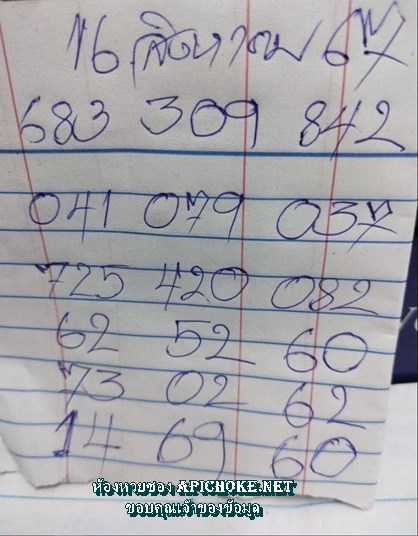 16 สิงหาคม 67
683 309 842
041 079 037
725 420 082
62 52 60
73 02 62
14 69 60
ห้องหวยซอง APICHOKE.NET
ขอบคุณเจ้าของข้อมูล